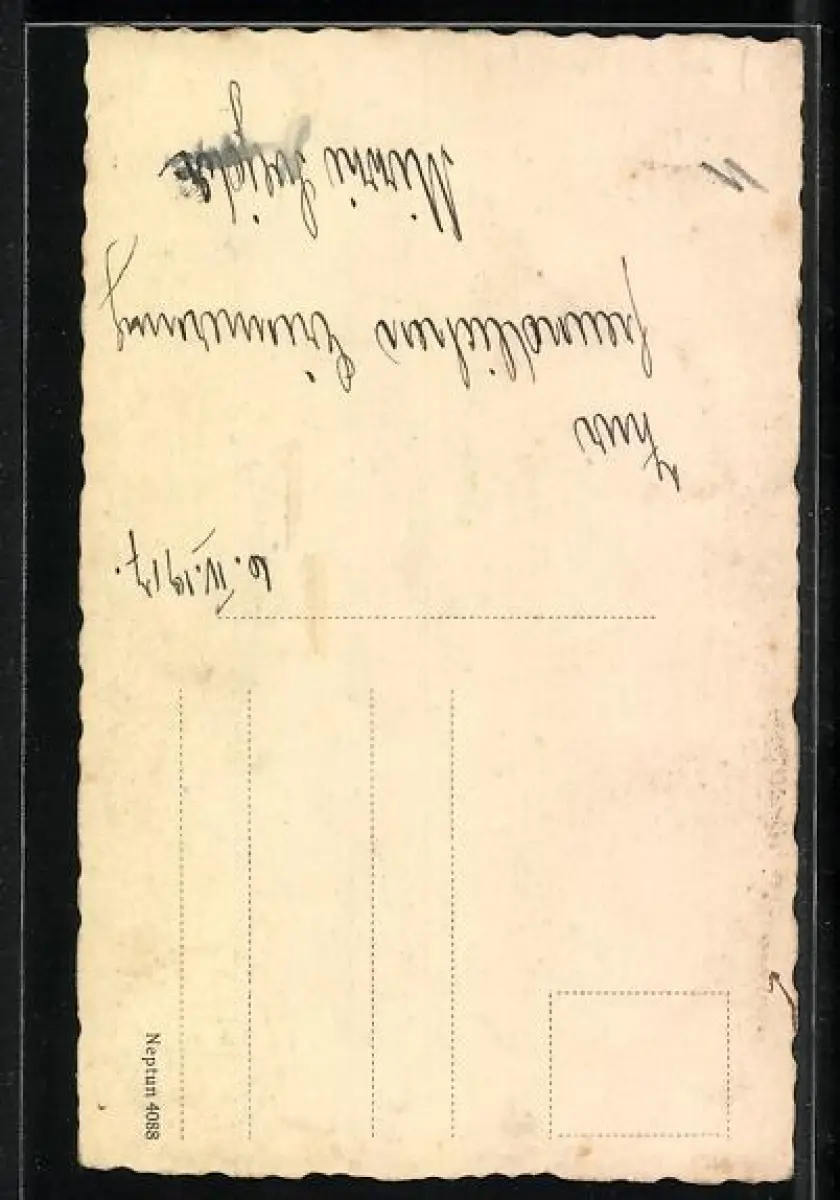 6. IV. 1917.
Zur
freundlichen Erinnerung
Neptun 4088